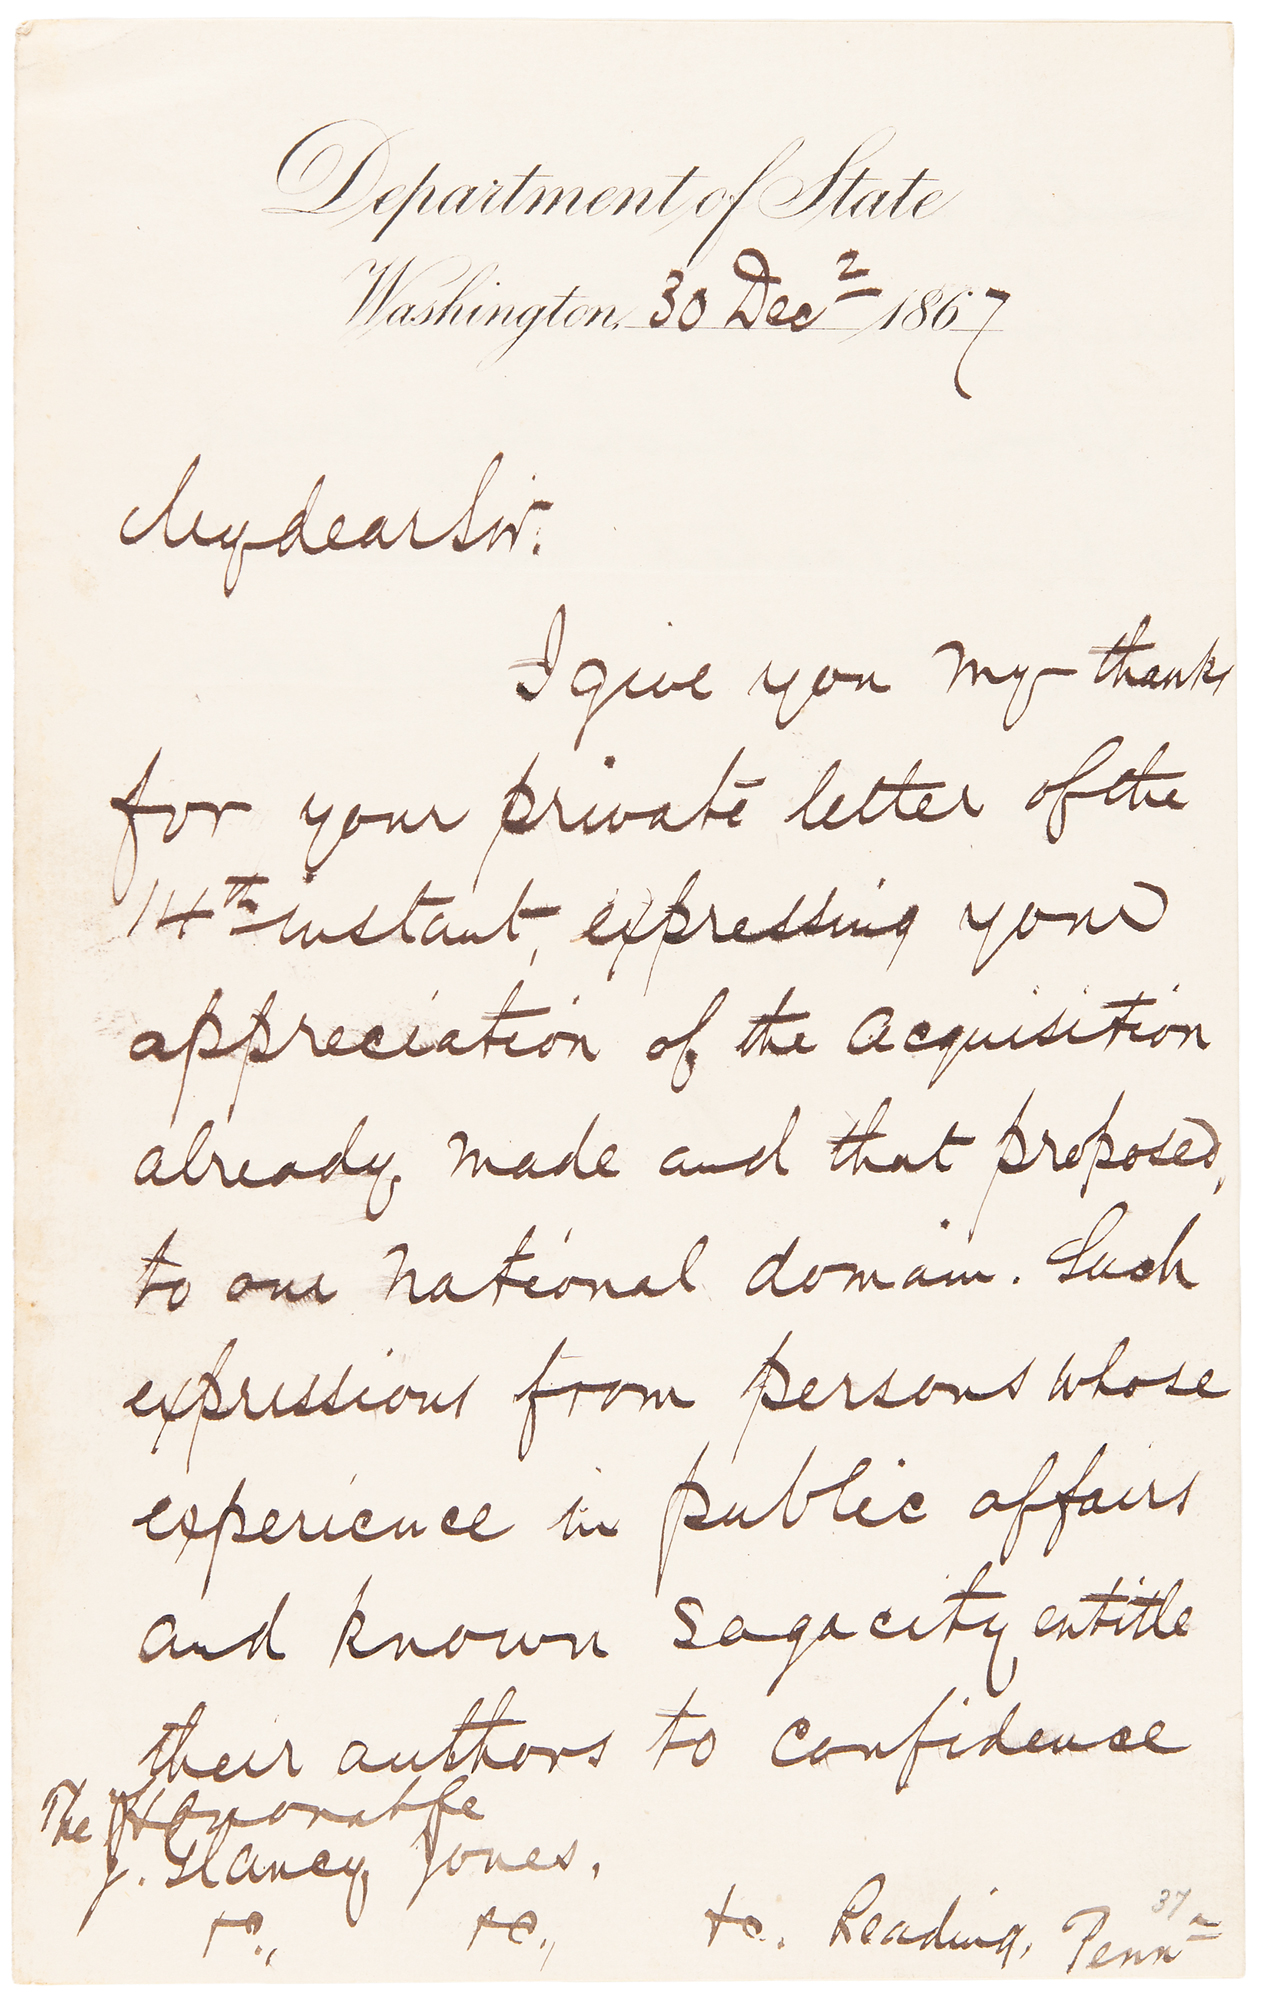 Department of State
Washington, 30 Decr 1867
My dear Sir:
I give you my thanks
for your private letter of the
14th instant, expressing your
appreciation of the acquisition
already made and that proposed,
to our national domain. Such
expressions from persons whose
experience in public affairs
and known sagacity entitle
their authors to confidence
The Honorable
J. Glancy Jones,
&c., &c., &c. Reading, Penna
37